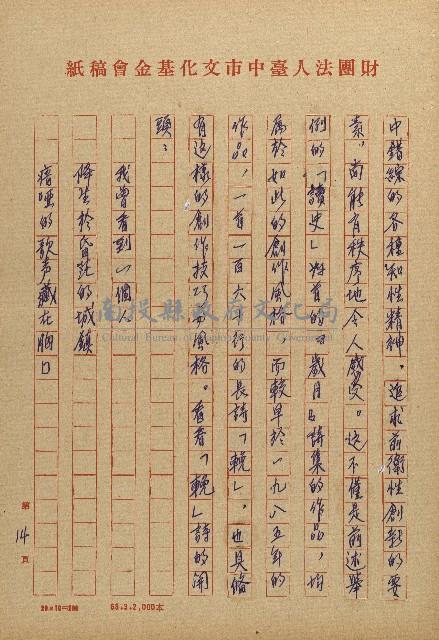 財團法人臺中市文化基金會稿紙
中錯綜的各種知性精神。追求前衛性創新的要
素,尚能有秩序地令人感受。這不僅是前述舉
例的「讀史」
歲月』詩集的作品,均
屬於如此的創作風格,而較早於一九八五年的
作品,一首一百六十行的長詩「輓」,也具備
有這樣的創作技巧與風格。看看「輓」詩的開
頭:
我曾看到一個人
降生於昏眊的城鎮
瘖啞的歌声藏在胸口
第14頁
20×10=200
68.3.2,000本
南投縣政府文化局
Cultural Bureau of Nantou County Government